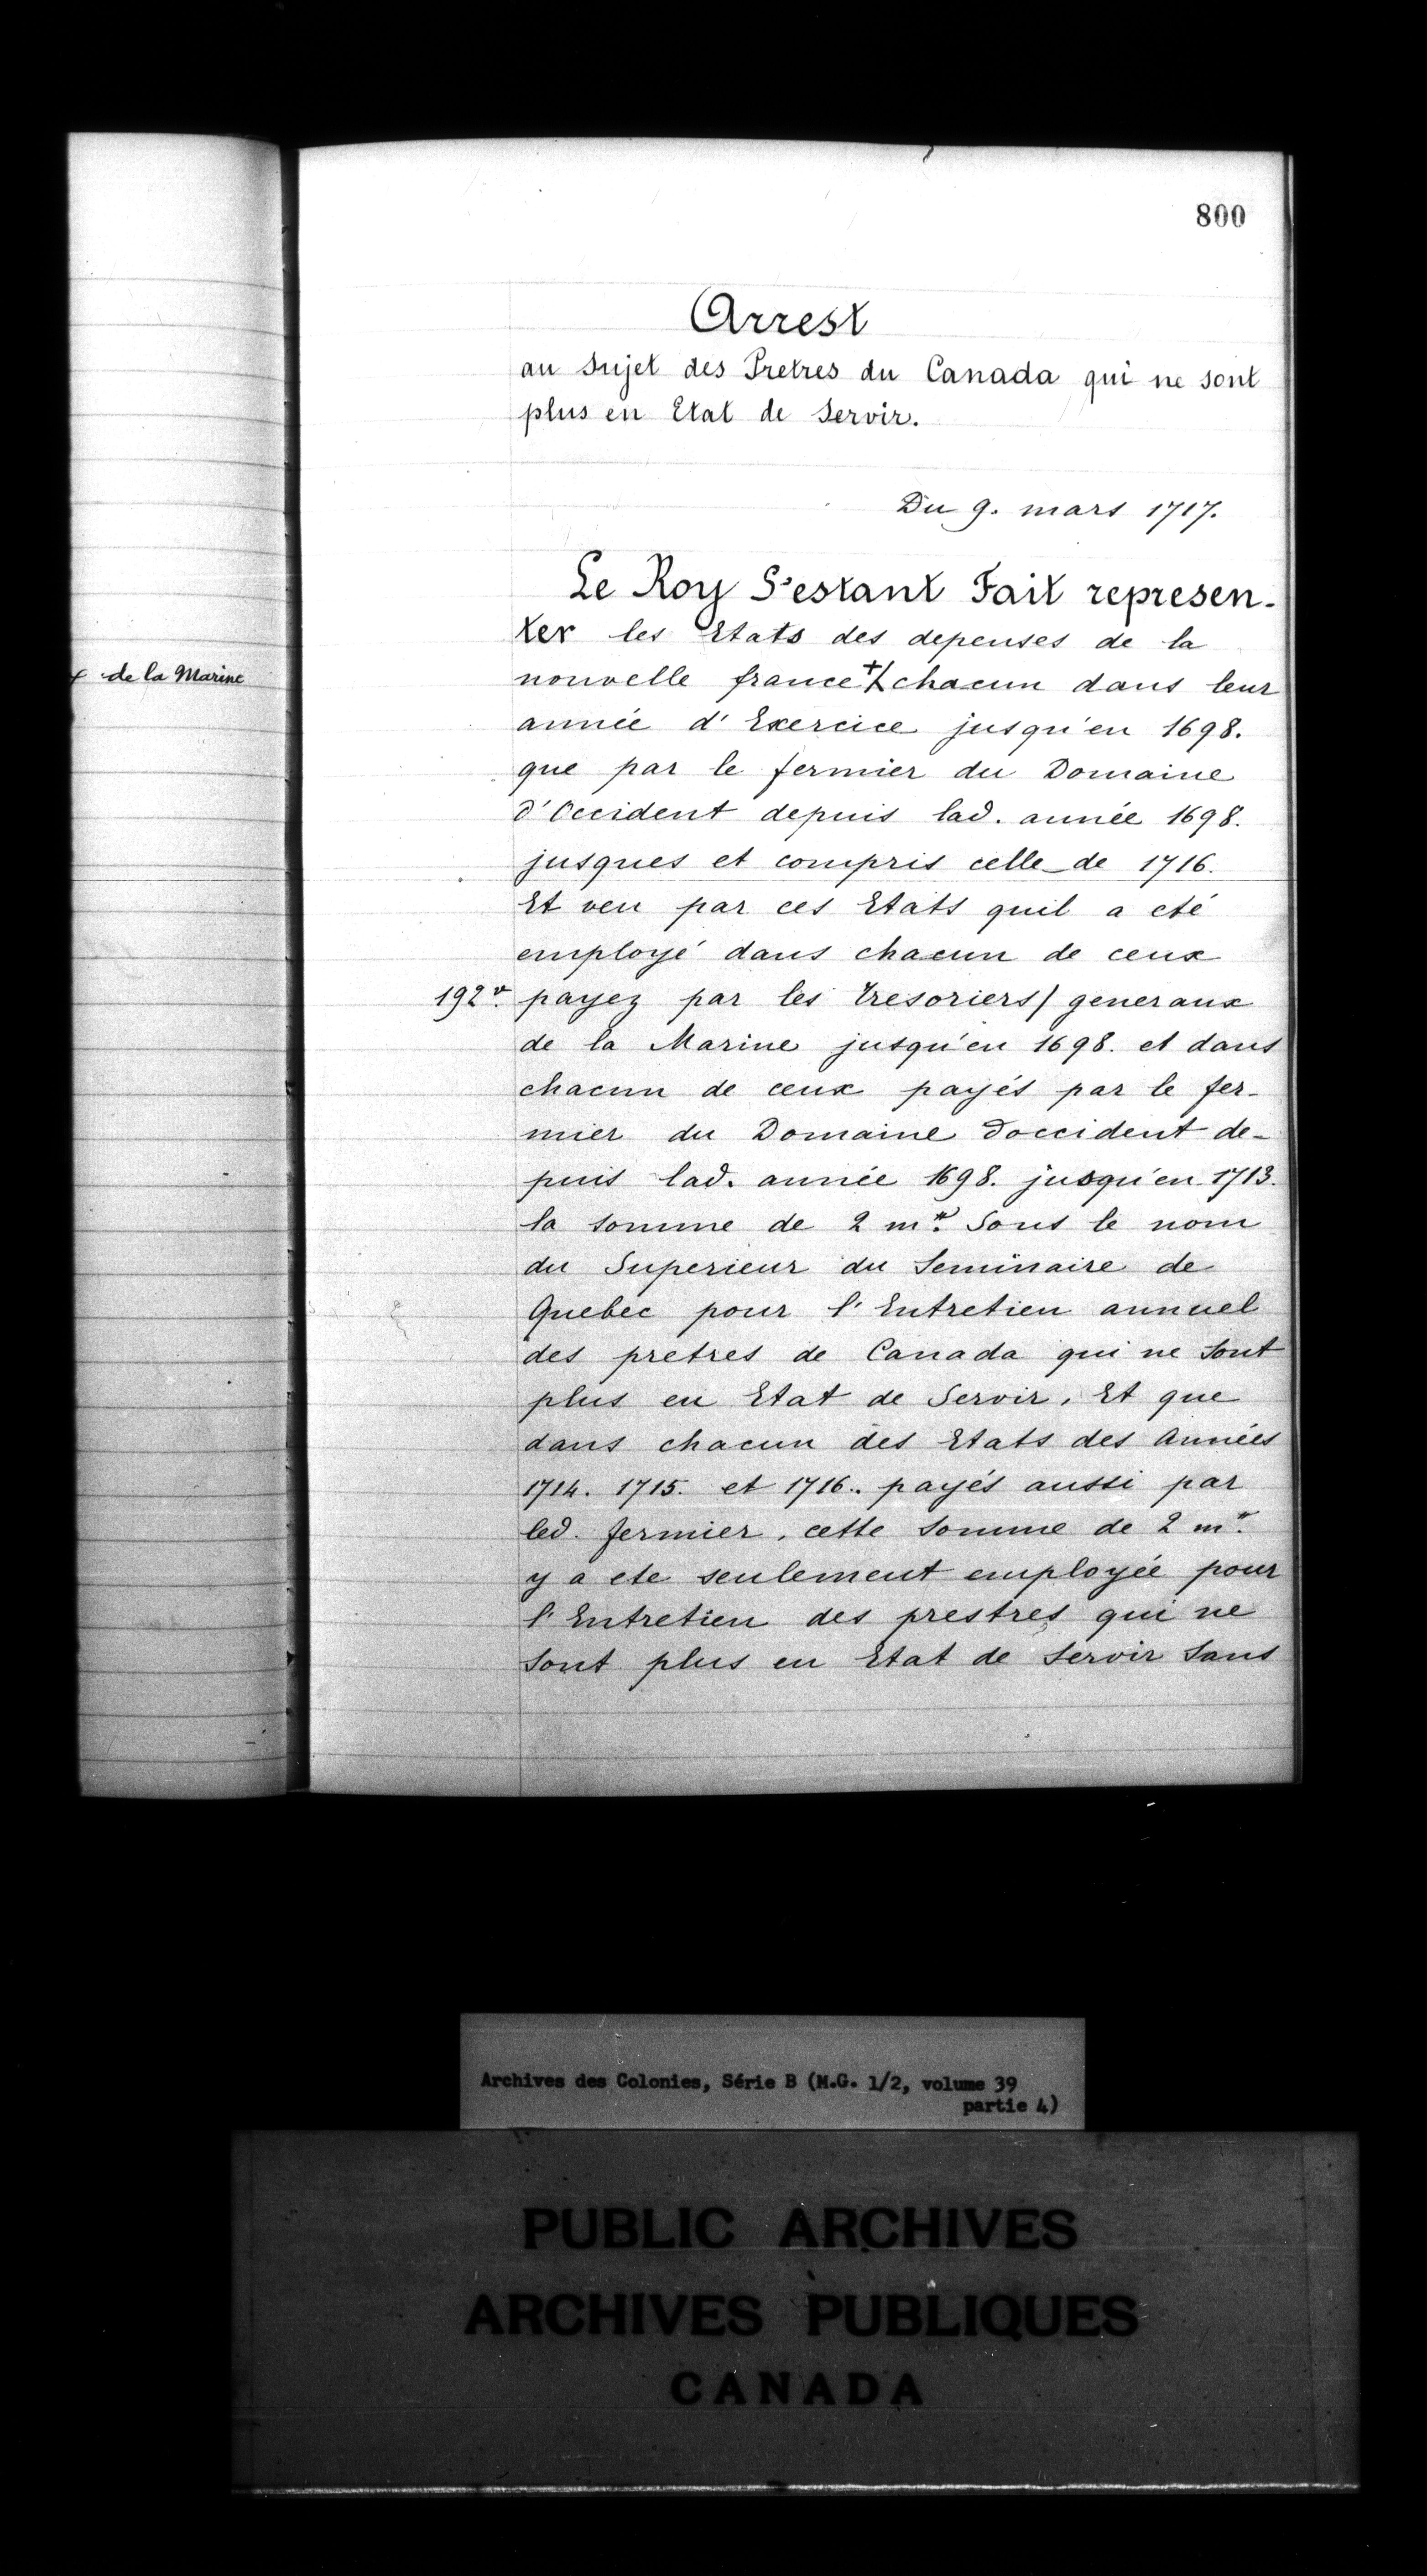 800
Arrest
au sujet des Pretres du Canada qui ne sont
plus en Etat de Servir.
Du 9. mars 1717.
Le Roy S'estant Fait represen-
ter les Etats des depenses de la
de la Marine
nouvelle france +/ chacun dans leur
année d'Exercice jusqu'en 1698.
que par le fermier du Domaine
d'Occident depuis lad. année 1698.
jusques et compris celle de 1716.
Et veu par ces Etats quil a eté
employé dans chacun de ceux
192v. payez par les tresoriers/ generaux
de la Marine jusqu'en 1698. et dans
chacun de ceux payés par le fer-
mier du Domaine doccident de-
puis lad. année 1698. jusqu'en 1713.
la somme de 2 m₶. Sous le nom
du Superieur du Seminaire de
Quebec pour l'Entretien annuel
des pretres de Canada qui ne sont
plus en Etat de Servir, Et que
dans chacun des Etats des Années
1714. 1715. et 1716.. payés aussi par
led. fermier, cette somme de 2 m₶.
y a ete seulement employée pour
l'Entretien des prestres qui ne
sont plus en Etat de servir sans
Archives des Colonies, Série B (M.G. 1/2, volume 39
partie 4)
PUBLIC ARCHIVES
ARCHIVES PUBLIQUES
CANADA